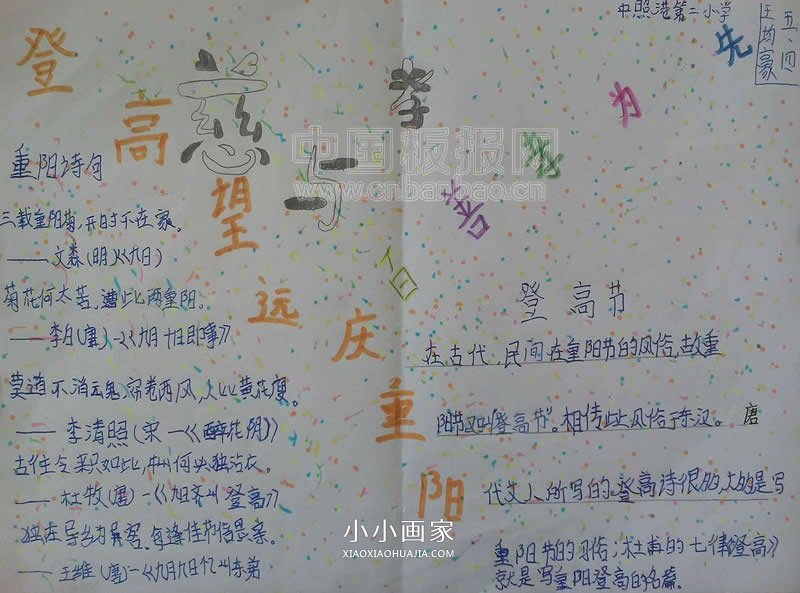 中照港第二小学
五、四
王均豪
登高望远庆重阳
慈与孝
百善孝为先
中国板报网
www.cnbanbao.cn
重阳诗句
三载重阳菊,开时不在家。
——文森(明)《九日》
菊花何太苦,遭此两重阳。
——李白(唐)-《九月十日即事》
莫道不消云鬼,帘卷西风,人比黄花瘦。
——李清照(宋—《醉花阴》
古往今来只如此,牛山何必独沾衣。
——杜牧(唐)-《九日齐山登高》
独在异乡为异客,每逢佳节倍思亲。
——王维(唐)-《九月九日忆山东弟
登高节
在古代,民间在重阳节的风俗,故重
阳节又叫"登高节"。相传此风俗于东汉。唐
代文人所写的登高诗很多,大的是写
重阳节的习俗;杜甫的七律《登高》
就是写重阳登高的名篇。
小小画家
XIAOXIAOHUAJIA.COM